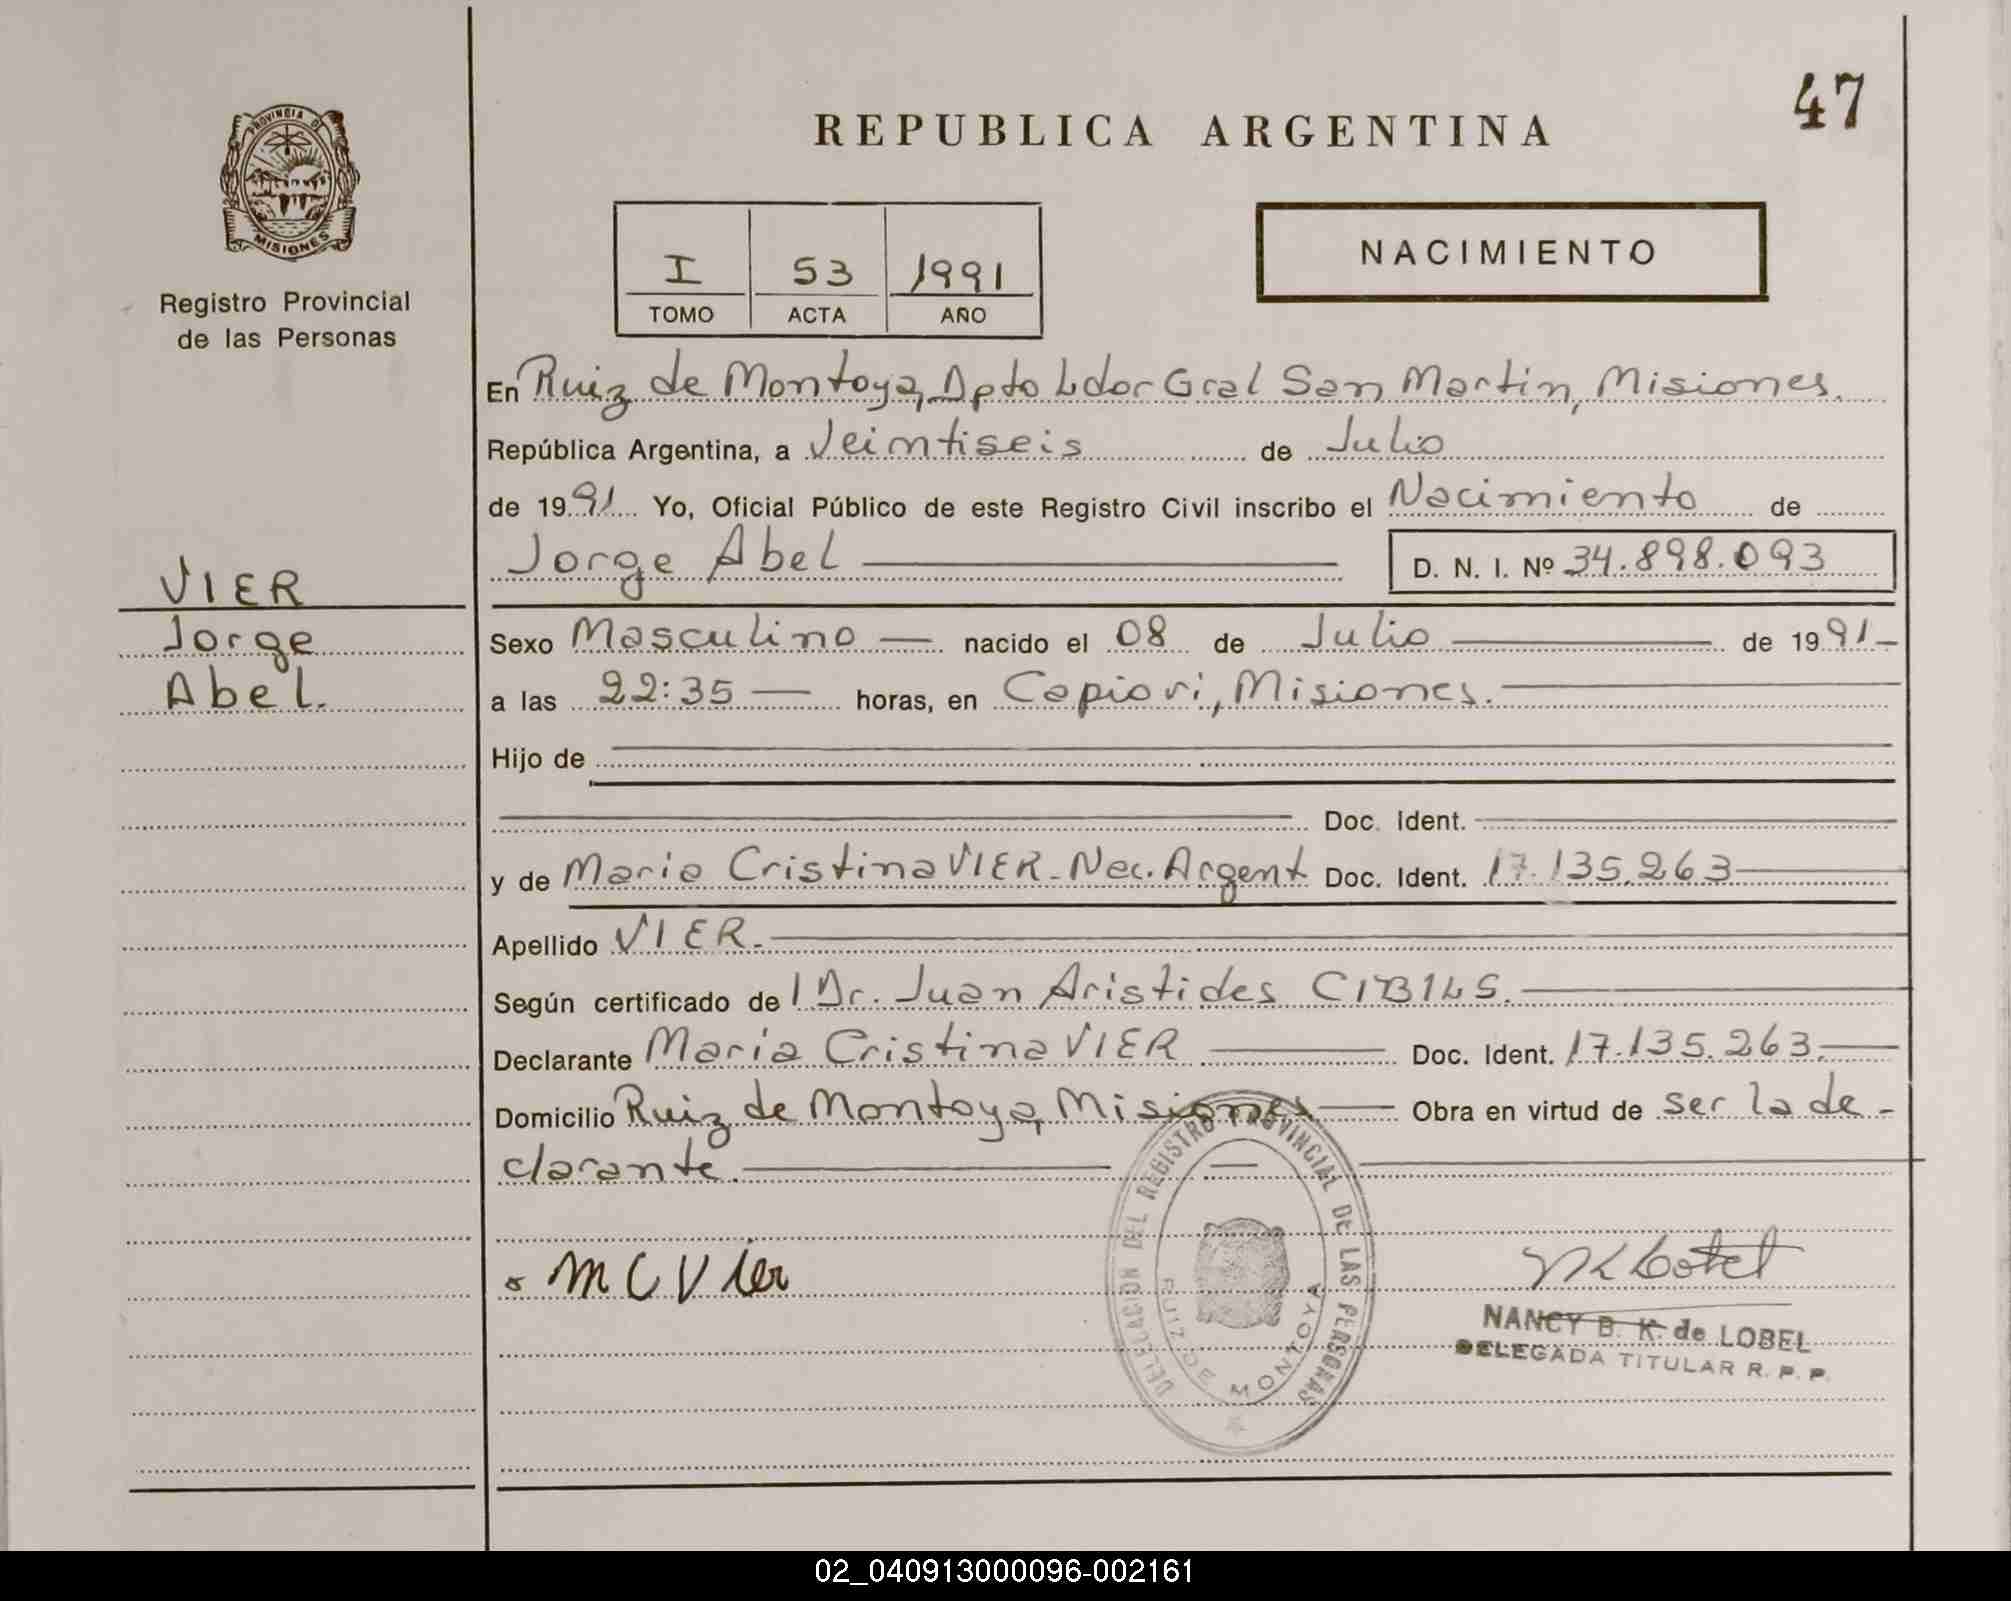 47
REPUBLICA ARGENTINA
PROVINCIA DE
MISIONES
Registro Provincial
de las Personas
I 53 1991
TOMO ACTA AÑO
NACIMIENTO
En Ruiz de Montoya, Dpto Ldor Gral San Martin, Misiones.
República Argentina, a Veintiseis de Julio
de 1991 Yo, Oficial Público de este Registro Civil inscribo el Nacimiento de
Jorge Abel D. N. I. Nº 34.898.093
VIER
Jorge
Abel.
Sexo Masculino nacido el 08 de Julio de 1991
a las 22:35 horas, en Capiovi, Misiones.
Hijo de
Doc. Ident.
y de Maria Cristina VIER - Nac. Argent Doc. Ident. 17.135.263
Apellido VIER.
Según certificado de l Dr. Juan Aristides CIBILS.
Declarante María Cristina VIER Doc. Ident. 17.135.263.
Domicilio Ruiz de Montoya, Misiones Obra en virtud de ser la de-
clarante.
MCVier
DELEGACION DEL REGISTRO PROVINCIAL DE LAS PERSONAS
RUIZ DE MONTOYA
NANCY B. K. de LOBEL
DELEGADA TITULAR R. P. P.
02_040913000096-002161